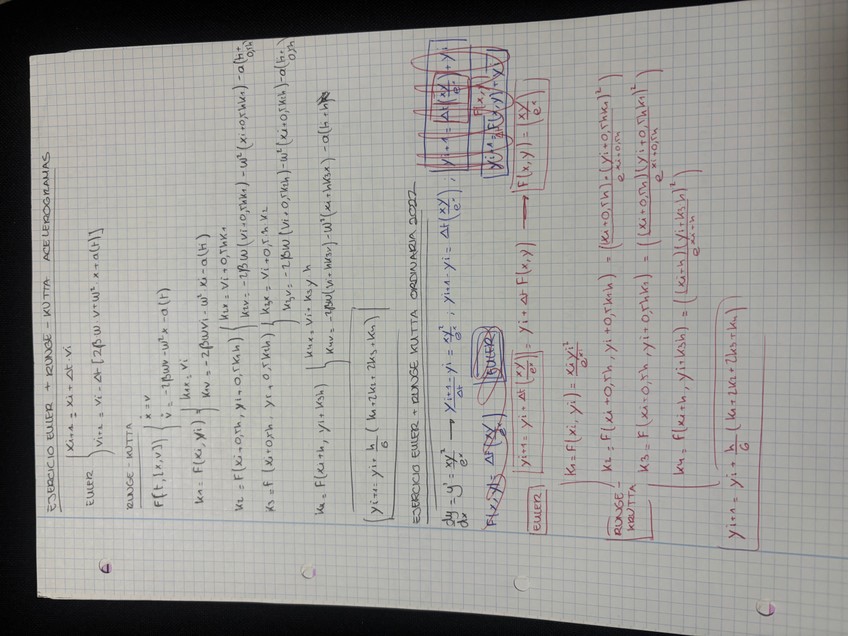 EJERCICIO EULER + RUNGE-KUTTA ACELEROGRAMAS
EULER { xi+1 = xi + Δt · vi
vi+1 = vi - Δt [2βω v + ω² x + a(t)]
RUNGE-KUTTA
F(t, [x,v]) { ẋ = v
v̇ = -2βωv - ω²x - a(t)
k1 = F(xi, yi) { k1x = vi
k1v = -2βωvi - ω² xi - a(t)
k2 = F(xi+0,5h, yi+0,5k1h) { k2x = vi + 0,5hk1
k2v = -2βω(vi+0,5hk1) - ω²(xi+0,5hk1) - a(t+0,5h)
k3 = F(xi+0,5h, yi+0,5k2h) { k3x = vi + 0,5h k2
k3v = -2βω(vi+0,5k2h) - ω²(xi+0,5k2h) - a(t+0,5h)
k4 = F(xi+h, yi+k3h) { k4x = vi + k3y h
k4v = -2βω(vi+hk3v) - ω²(xi+hk3x) - a(t+h)
yi+1 = yi + h/6 (k1+2k2+2k3+k4)
EJERCICIO EULER + RUNGE KUTTA ORDINARIA 2022
dy/dx = y' = xy²/eˣ → yi+1 - yi/Δt = xy²/eˣ ; yi+1 - yi = Δt (xy²/eˣ) ; yi+1 = Δt (xy²/eˣ) + yi
F(x,y) = Δt (xy²/eˣ) EULER yi+1 = F(x,y) + yi
F(x,y)
EULER yi+1 = yi + Δt (xy²/eˣ) = yi + Δt F(x,y) → F(x,y) = (xy²/eˣ)
RUNGE-KRUTTA
k1 = F(xi, yi) = xi yi²/eˣ
k2 = F(xi+0,5h, yi+0,5k1h) = ((xi+0,5h)·(yi+0,5hk1)²/e^xi+0,5h)
k3 = F(xi+0,5h, yi+0,5hk2) = ((xi+0,5h)(yi+0,5hk2)²/e^xi+0,5h)
k4 = F(xi+h, yi+k3h) = ((xi+h)(yi+k3h)²/e^xi+h)
yi+1 = yi + h/6 (k1+2k2+2k3+k4)